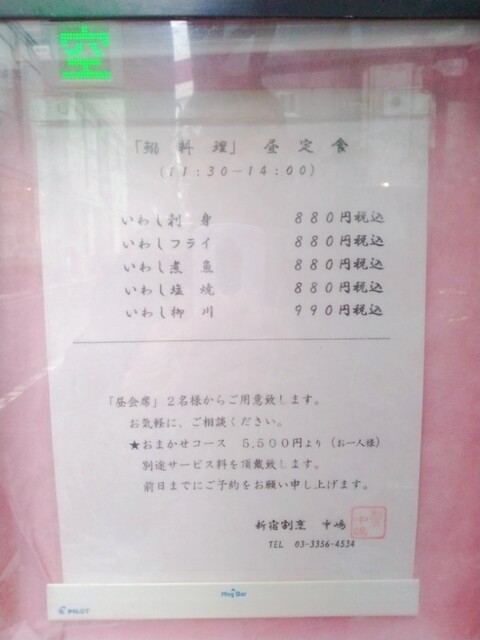 空
「鰯 料 理」 昼 定 食
(11:30-14:00)
いわし刺 身 880円税込
いわしフライ 880円税込
いわし煮 魚 880円税込
いわし塩 焼 880円税込
いわし柳 川 990円税込
「昼会席」2名様からご用意致します。
お気軽に、ご相談ください。
★おまかせコース 5,500円より (お一人様)
別途サービス料を頂戴致します。
前日までにご予約をお願い申し上げます。
新宿割烹 中嶋
TEL 03-3356-4534
Mag Bar
PILOT